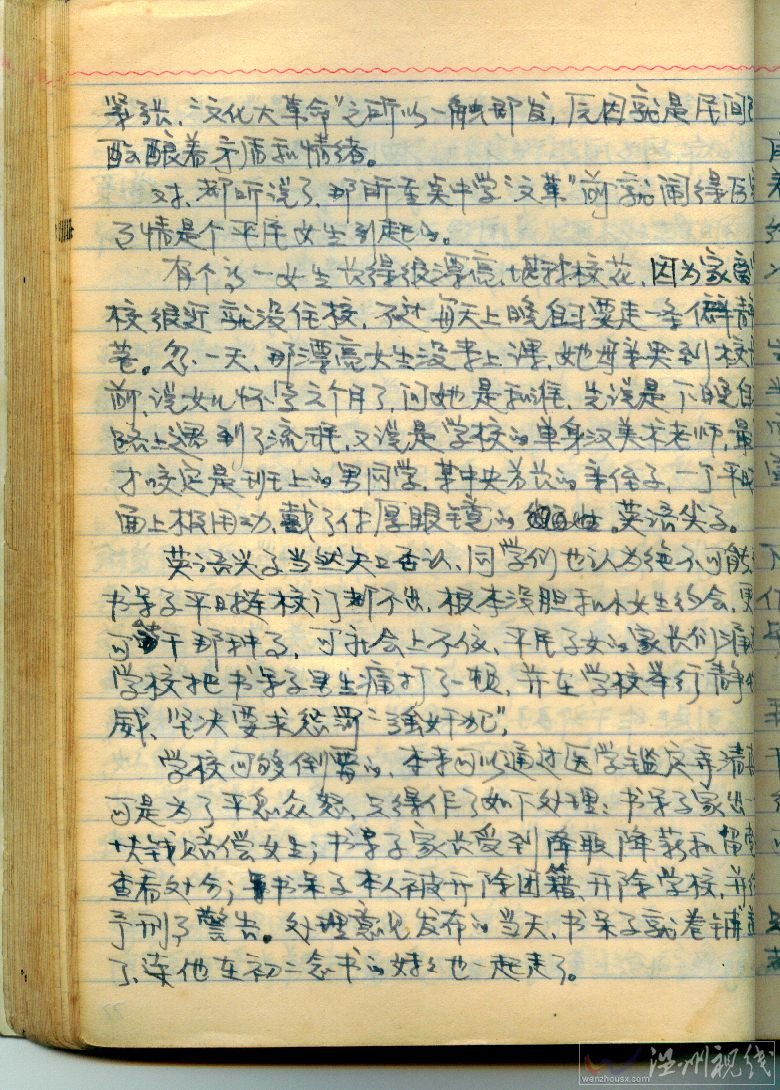 紧张，“文化大革命”之所以一触即发，原因就是民间
酝酿着矛盾和情绪。
对，都听说了，那所重点中学“文革”前就闹得厉
了情是个平民女生引起的。
有个高一女生长得很漂亮，堪称校花，因为家离
校很近就没住校，不过每天上晚自习要走一条僻静
巷。忽一天，那漂亮女生没来上课，她母亲哭到校
前，说女儿怀孕三个月了，问她是和谁，先说是下晚自
路上遇到了流氓，又说是学校的单身汉美术老师，最
才咬定是班上的男同学，某中央首长的亲侄子，一个平时
面上极用功，戴了付厚眼镜的 英语尖子。
英语尖子当然矢口否认，同学们也认为绝不可能，
书呆子平时连校门都不出，根本没胆和女生约会，更
可 干那种事，可就会上不依，平民子女的家长们涌
学校把书呆子男生痛打了一顿，并在学校举行静
威，坚决要求惩罚“强奸犯”，
学校可够倒霉的，本来可以通过医学鉴定弄清
可是为了平息众怒，只得作了如下处理：书呆子家出
块钱赔偿女生；书呆子家长受到降职降薪和留党
查看处分；书呆子本人被开除团籍、开除学校，并
予刑事警告。处理意见发布的当天，书呆子就卷铺盖
了，连他在初二念书的妹妹也一起走了。
温州视线
wenzhousx.com